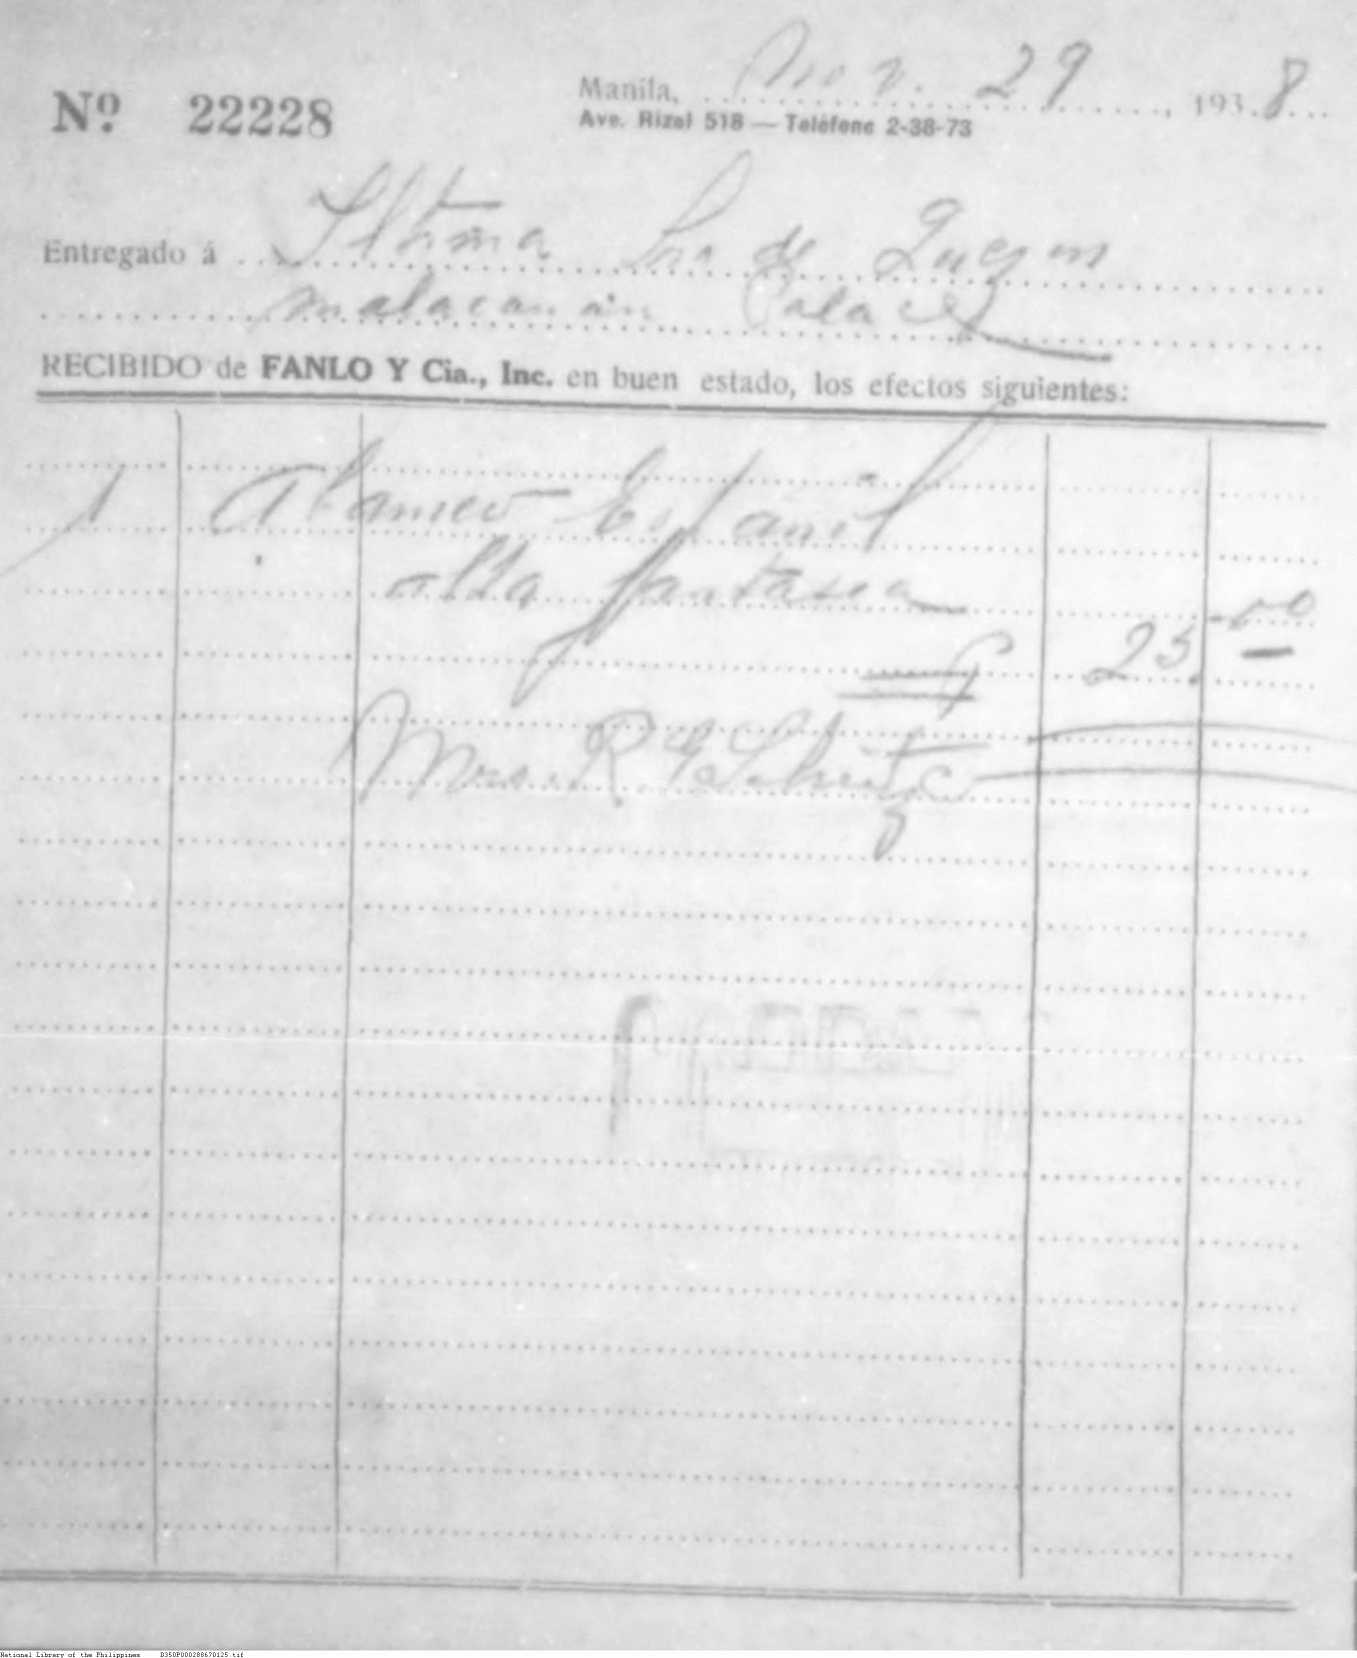 Nº 22228
Manila, Nov. 29, 1938
Ave. Rizal 518 — Teléfono 2-38-73
Entregado á Iltma Sra de Quezon
Malacañan Palace
RECIBIDO de FANLO Y Cia., Inc. en buen estado, los efectos siguientes:
1 Abanico Español
alta fantasia
₱ 25.00
Mrs. R
National Library of the Philippines B350P000288670125.tif